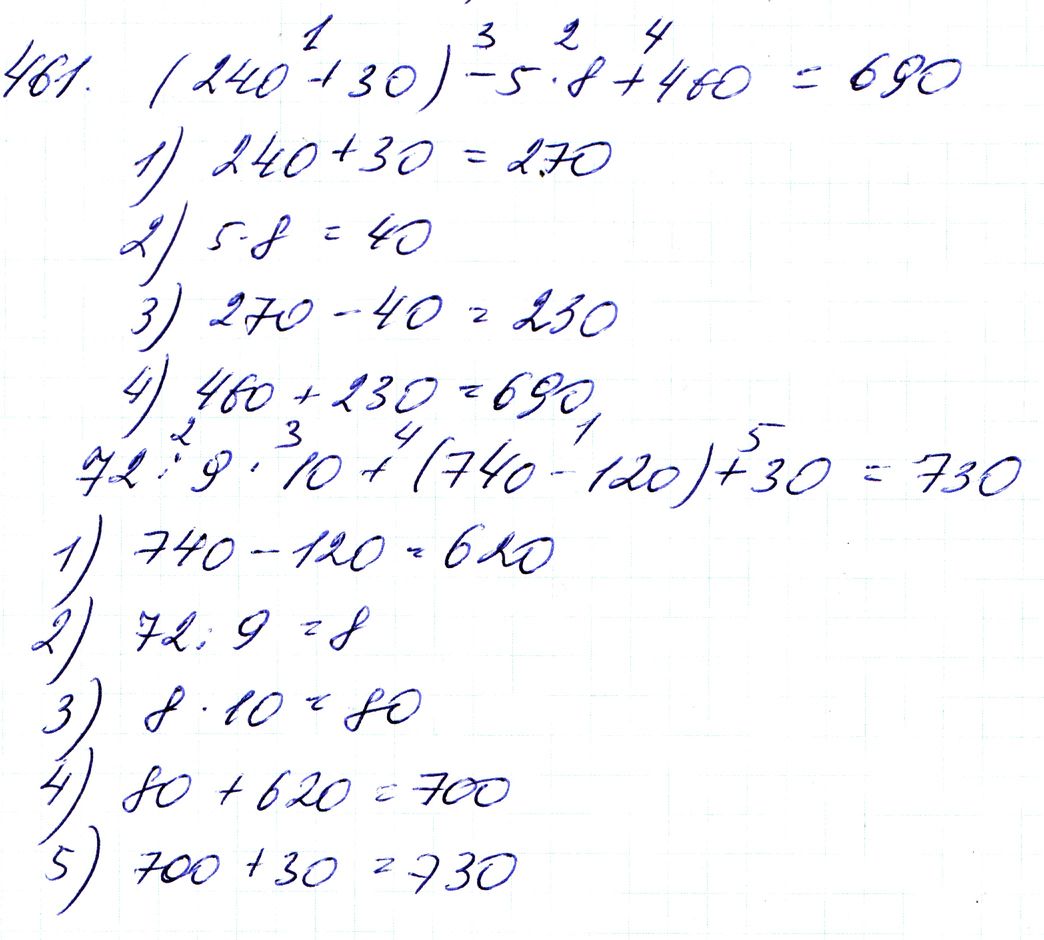 1 3 2 4
461. (240 + 30) - 5 · 8 + 460 = 690
1) 240 + 30 = 270
2) 5 · 8 = 40
3) 270 - 40 = 230
4) 460 + 230 = 690
2 3 4 1 5
72 : 9 · 10 + (740 - 120) + 30 = 730
1) 740 - 120 = 620
2) 72 : 9 = 8
3) 8 · 10 = 80
4) 80 + 620 = 700
5) 700 + 30 = 730